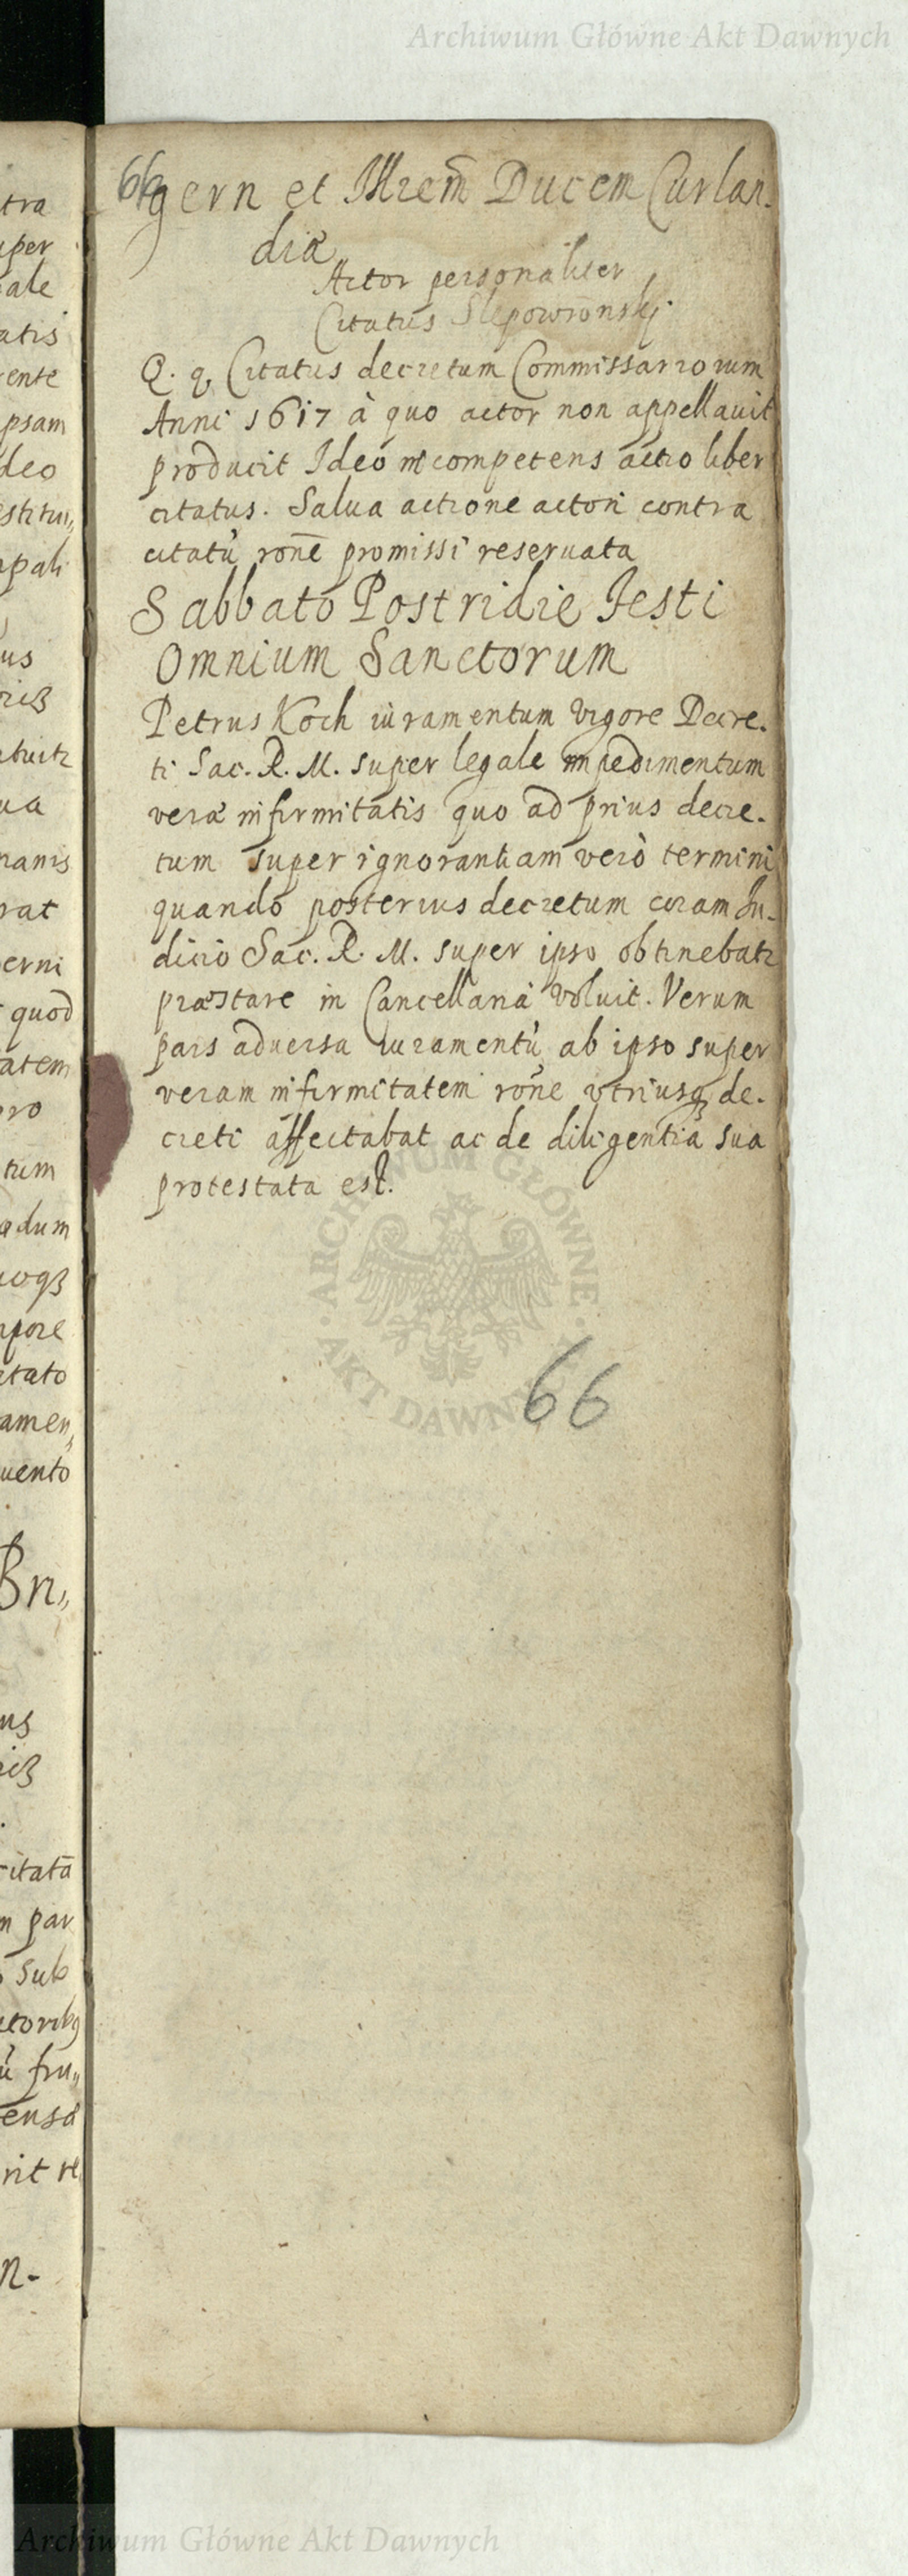 Archiwum Główne Akt Dawnych
66
gern et Illrem̄ Ducem Curlan.
diæ
Actor personaliter
Citatus Slepowronskj
Q. q Citatus decretum Commissariorum
Anni 1617 à quo actor non appellauit
producit Ideo incompetens actio liber
citatus. Salua actione actori contra
citatũ rone̅ promissi reseruata
Sabbato Postridie Festi
Omnium Sanctorum
Petrus Koch iuramentum vigore Decre.
ti Sac. R. M. super legale impedimentum
veræ infirmitatis quo ad prius decre.
tum super ignorantiam verò termini
quando posterius decretum coram Iu.
dicio Sac. R. M. super ipso obtinebatr
præstare in Cancellaria voluit. Verum
pars aduersa iuramentũ ab ipso super
veram infirmitatem rone̅ vtriusq de.
creti affectabat ac de diligentia sua
protestata est.
ARCHIWUM GŁÓWNE AKT DAWNYCH
66
tra
uper
ale
atis
rente
ipsam
deo
estitui,,
ipali
us
atuitr
ua
manis
rat
erni
quod
atem
pro
tum
adum
mpore
itato
amen,
uento
Bn,,
ns
citatā
m par
sub
ũ fru,,
ensa
rit re
n-
Archiwum Główne Akt Dawnych